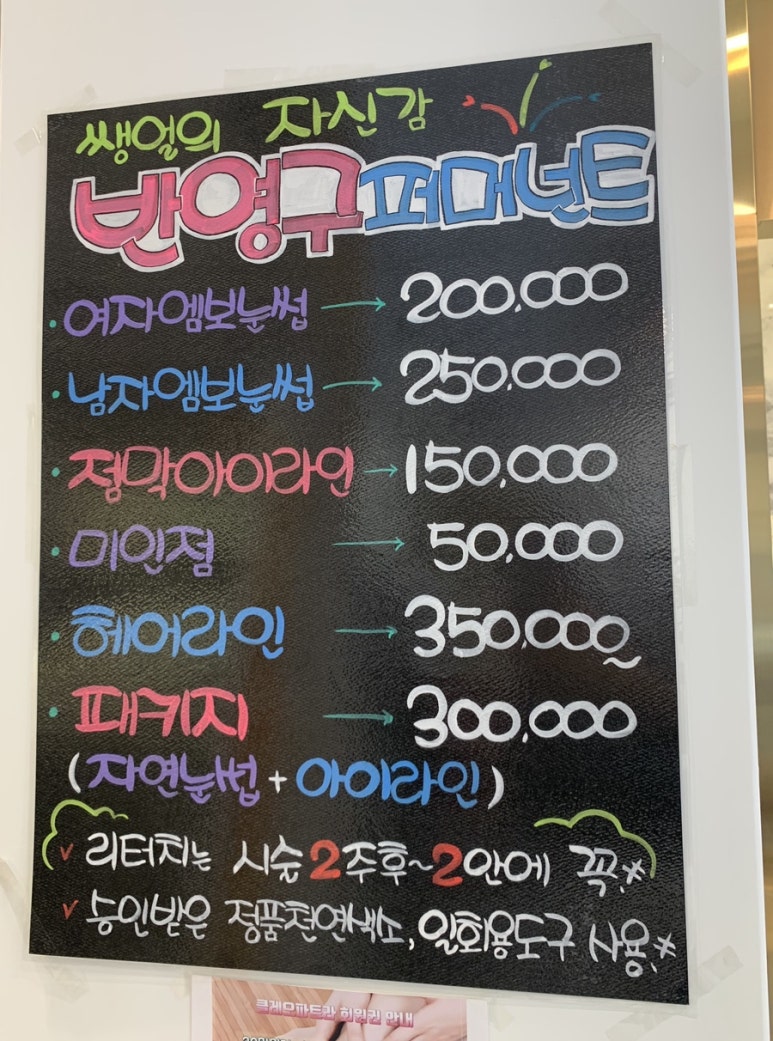 쌩얼의 자신감
반영구퍼머넌트
· 여자엠보눈썹 → 200,000
· 남자엠보눈썹 → 250,000
· 점막아이라인 → 150,000
· 미인점 → 50,000
· 헤어라인 → 350,000~
· 패키지 → 300,000
(자연눈썹 + 아이라인)
✓ 리터치는 시술 2주후~2안에 꼭!*
✓ 승인받은 정품천연색소, 일회용도구 사용!*
클레오파트라 회원권 안내